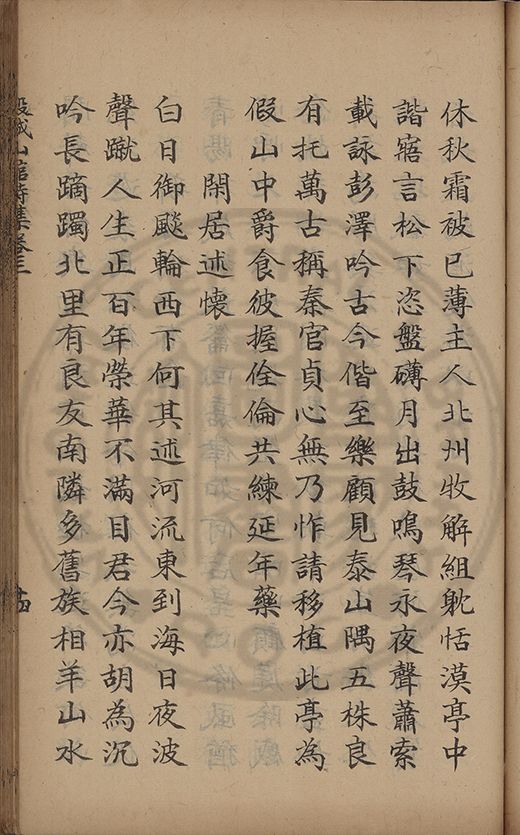 休秋霜被已薄主人北州牧解組躭恬漠亭中
諧寤言松下恣盤礴月出鼓鳴琴永夜聲蕭索
載詠彭澤吟古今偕至樂顧見泰山隅五株良
有托萬古稱秦官貞心無乃怍請移植此亭為
假山中爵食彼握佺倫共練延年藥
閑居述懷
白日御飈輪西下何其述河流東到海日夜波
聲蹴人生正百年榮華不滿目君今亦胡為沉
吟長蹢躅北里有良友南隣多舊族相羊山水
穀城山館詩集卷三
十四